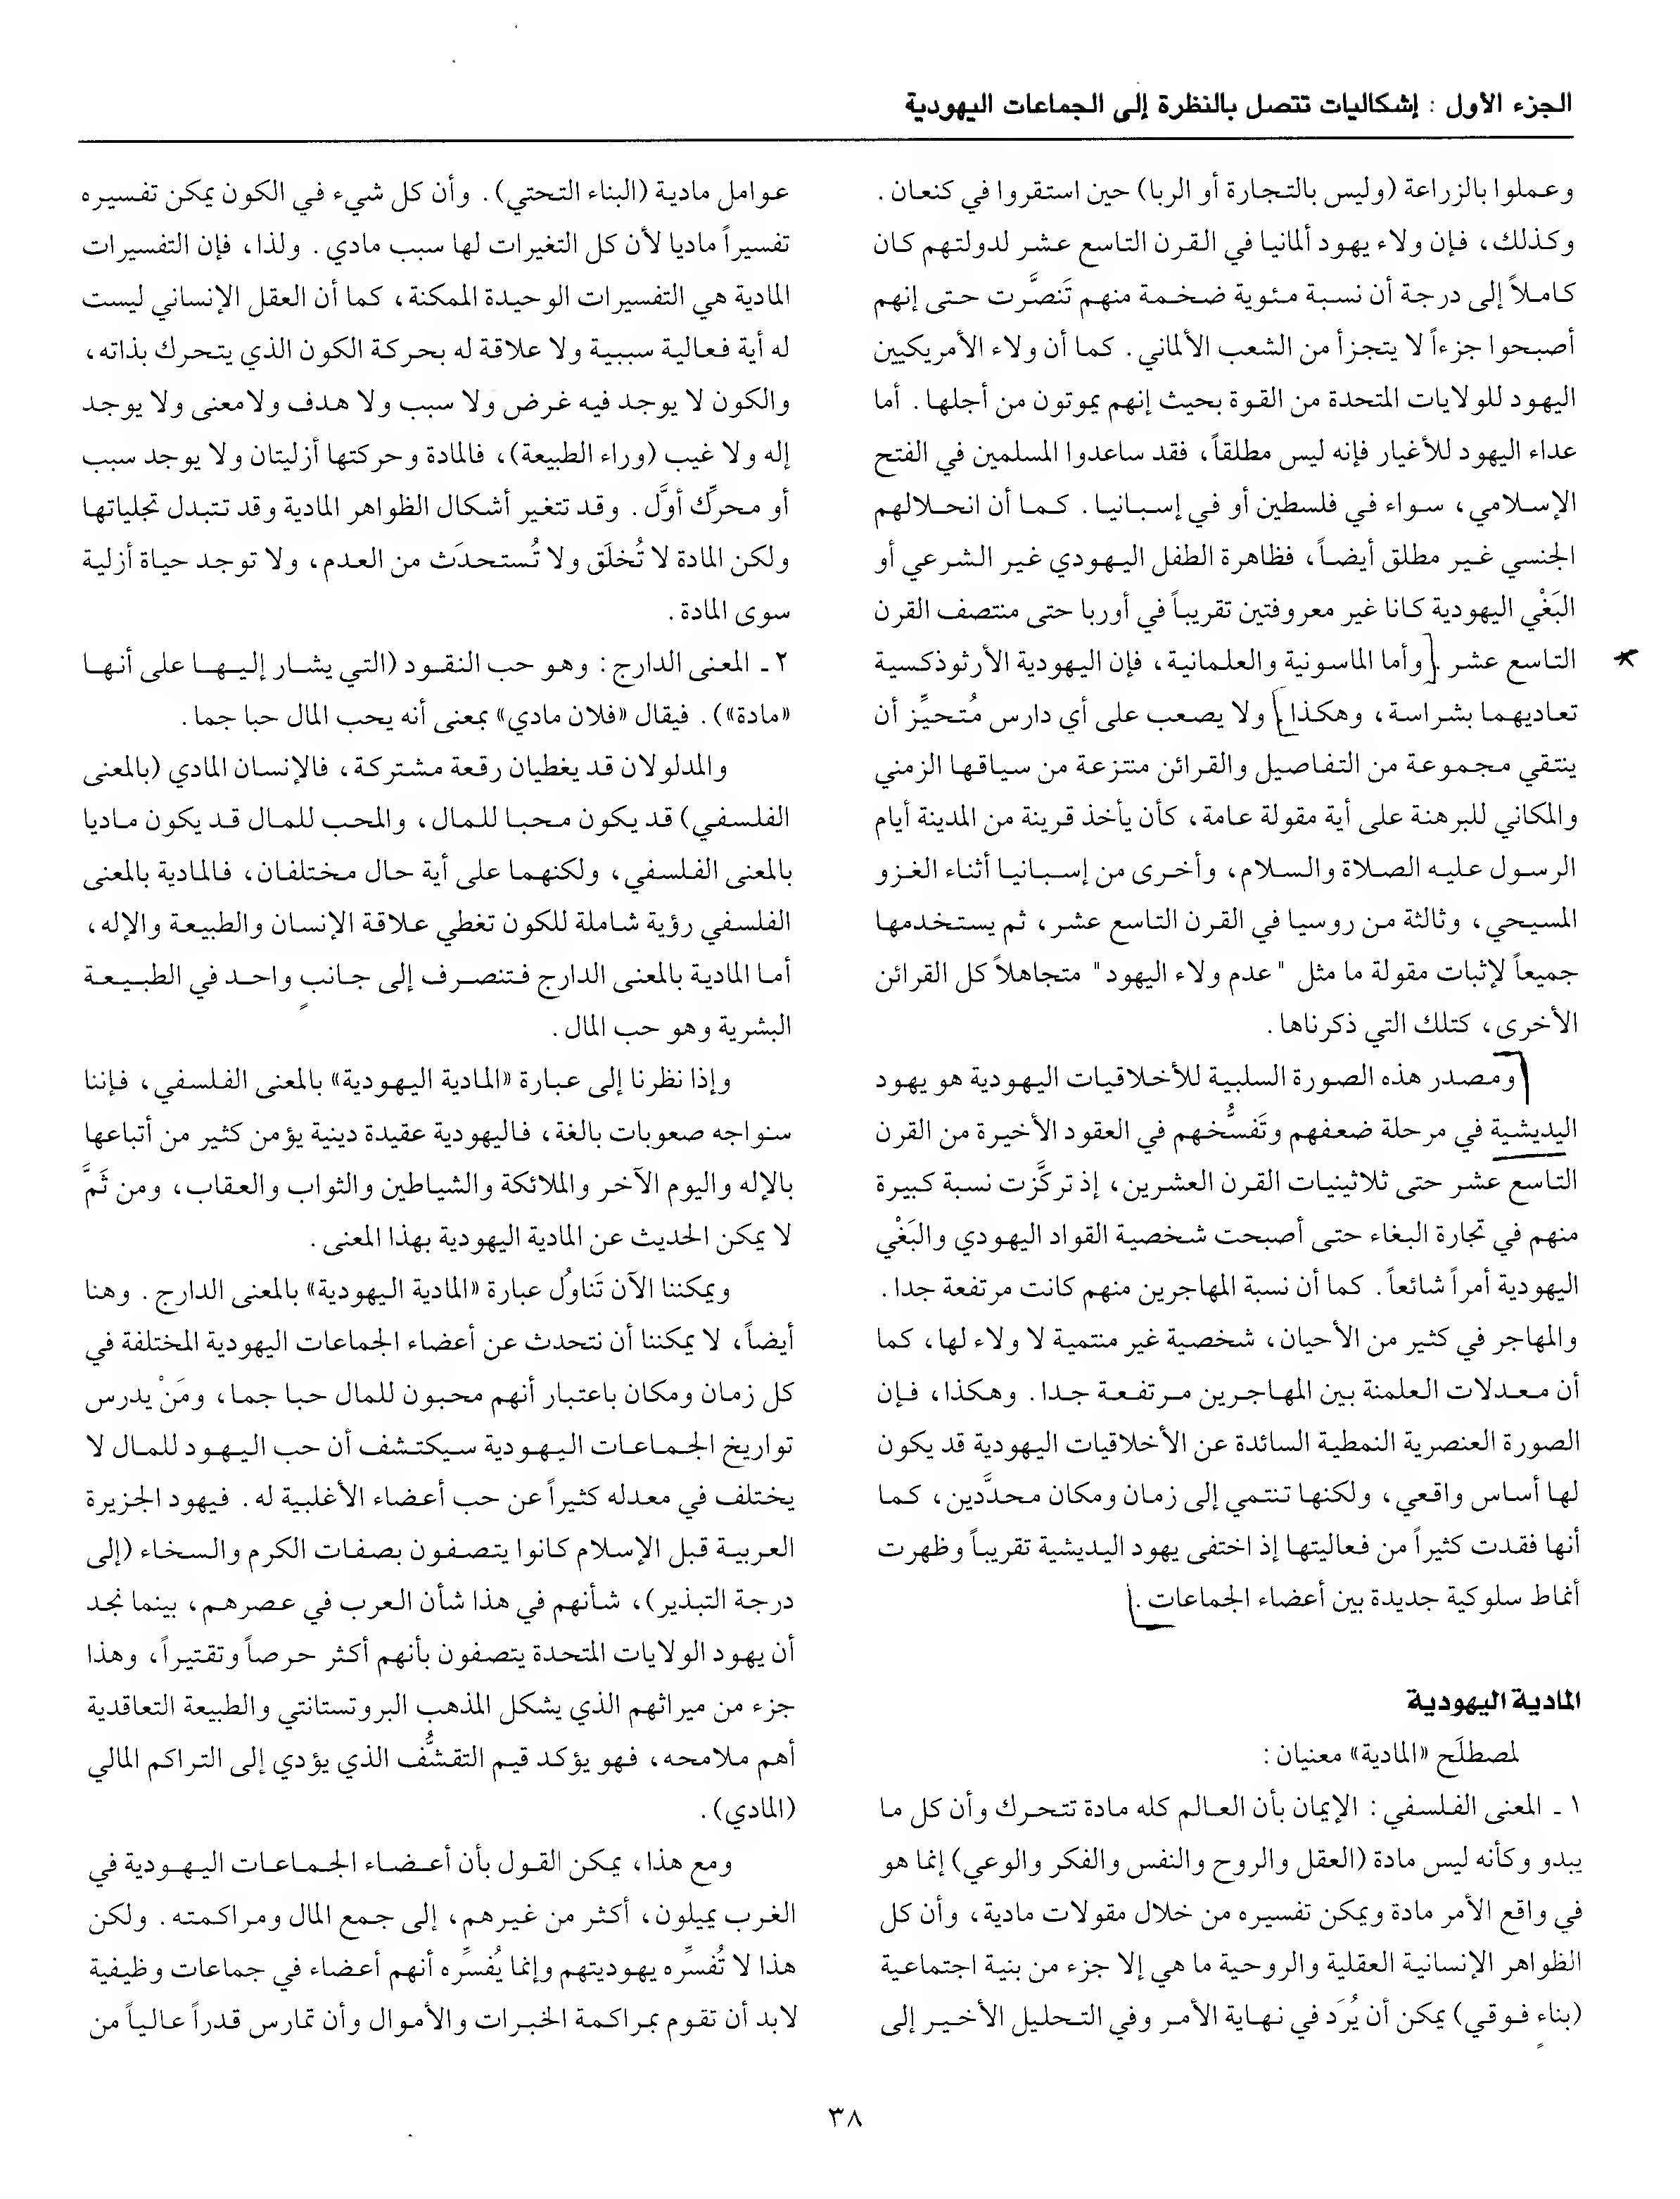 الجزء الأول : إشكاليات تتصل بالنظرة إلى الجماعات اليهودية
وعملوا بالزراعة (وليس بالتجارة أو الربا) حين استقروا في كنعان .
وكذلك، فإن ولاء يهود ألمانيا في القرن التاسع عشر لدولتهم كان
كاملاً إلى درجة أن نسبة مئوية ضخمة منهم تَنصَّرت حتى إنهم
أصبحوا جزءاً لا يتجزأ من الشعب الألماني . كما أن ولاء الأمريكيين
اليهود للولايات المتحدة من القوة بحيث إنهم يموتون من أجلها . أما
عداء اليهود للأغيار فإنه ليس مطلقاً، فقد ساعدوا المسلمين في الفتح
الإسلامي، سواء في فلسطين أو في إسبانيا . كما أن انحلالهم
الجنسي غير مطلق أيضاً، فظاهرة الطفل اليهودي غير الشرعي أو
البَغْي اليهودية كانا غير معروفتين تقريباً في أوربا حتى منتصف القرن
التاسع عشر . وأما الماسونية والعلمانية، فإن اليهودية الأرثوذكسية
تعاديهما بشراسة، وهكذا . ولا يصعب على أي دارس مُتحيِّز أن
ينتقي مجموعة من التفاصيل والقرائن منتزعة من سياقها الزمني
والمكاني للبرهنة على أية مقولة عامة، كأن يأخذ قرينة من المدينة أيام
الرسول عليه الصلاة والسلام، وأخرى من إسبانيا أثناء الغزو
المسيحي، وثالثة من روسيا في القرن التاسع عشر، ثم يستخدمها
جميعاً لإثبات مقولة ما مثل "عدم ولاء اليهود" متجاهلاً كل القرائن
الأخرى، كتلك التي ذكرناها .
ومصدر هذه الصورة السلبية للأخلاقيات اليهودية هو يهود
اليديشية في مرحلة ضعفهم وتَفسُّخهم في العقود الأخيرة من القرن
التاسع عشر حتى ثلاثينيات القرن العشرين، إذ تركَّزت نسبة كبيرة
منهم في تجارة البغاء حتى أصبحت شخصية القواد اليهودي والبَغْي
اليهودية أمراً شائعاً . كما أن نسبة المهاجرين منهم كانت مرتفعة جدا .
والمهاجر في كثير من الأحيان، شخصية غير منتمية لا ولاء لها، كما
أن معدلات العلمنة بين المهاجرين مرتفعة جدا . وهكذا، فإن
الصورة العنصرية النمطية السائدة عن الأخلاقيات اليهودية قد يكون
لها أساس واقعي، ولكنها تنتمي إلى زمان ومكان محدَّدين، كما
أنها فقدت كثيراً من فعاليتها إذ اختفى يهود اليديشية تقريباً وظهرت
أنماط سلوكية جديدة بين أعضاء الجماعات .
المادية اليهودية
لمصطلَح «المادية» معنيان :
١ ـ المعنى الفلسفي : الإيمان بأن العالم كله مادة تتحرك وأن كل ما
يبدو وكأنه ليس مادة (العقل والروح والنفس والفكر والوعي) إنما هو
في واقع الأمر مادة ويمكن تفسيره من خلال مقولات مادية، وأن كل
الظواهر الإنسانية العقلية والروحية ما هي إلا جزء من بنية اجتماعية
(بناءٍ فوقي) يمكن أن يُرَد في نهاية الأمر وفي التحليل الأخير إلى
عوامل مادية (البناء التحتي) . وأن كل شيء في الكون يمكن تفسيره
تفسيراً ماديا لأن كل التغيرات لها سبب مادي . ولذا، فإن التفسيرات
المادية هي التفسيرات الوحيدة الممكنة، كما أن العقل الإنساني ليست
له أية فعالية سببية ولا علاقة له بحركة الكون الذي يتحرك بذاته،
والكون لا يوجد فيه غرض ولا سبب ولا هدف ولامعنى ولا يوجد
إله ولا غيب (وراء الطبيعة)، فالمادة وحركتها أزليتان ولا يوجد سبب
أو محرِّك أوَّل . وقد تتغير أشكال الظواهر المادية وقد تتبدل تجلياتها
ولكن المادة لا تُخلَق ولا تُستحدَث من العدم، ولا توجد حياة أزلية
سوى المادة .
٢ ـ المعنى الدارج : وهو حب النقود (التي يشار إليها على أنها
«مادة») . فيقال «فلان مادي» بمعنى أنه يحب المال حبا جما .
والمدلولان قد يغطيان رقعة مشتركة، فالإنسان المادي (بالمعنى
الفلسفي) قد يكون محبا للمال، والمحب للمال قد يكون ماديا
بالمعنى الفلسفي، ولكنهما على أية حال مختلفان، فالمادية بالمعنى
الفلسفي رؤية شاملة للكون تغطي علاقة الإنسان والطبيعة والإله،
أما المادية بالمعنى الدارج فتنصرف إلى جانبٍ واحد في الطبيعة
البشرية وهو حب المال .
وإذا نظرنا إلى عبارة «المادية اليهودية» بالمعنى الفلسفي، فإننا
سنواجه صعوبات بالغة، فاليهودية عقيدة دينية يؤمن كثير من أتباعها
بالإله واليوم الآخر والملائكة والشياطين والثواب والعقاب، ومن ثَمَّ
لا يمكن الحديث عن المادية اليهودية بهذا المعنى .
ويمكننا الآن تَناوُل عبارة «المادية اليهودية» بالمعنى الدارج . وهنا
أيضاً، لا يمكننا أن نتحدث عن أعضاء الجماعات اليهودية المختلفة في
كل زمان ومكان باعتبار أنهم محبون للمال حبا جما، ومَنْ يدرس
تواريخ الجماعات اليهودية سيكتشف أن حب اليهود للمال لا
يختلف في معدله كثيراً عن حب أعضاء الأغلبية له . فيهود الجزيرة
العربية قبل الإسلام كانوا يتصفون بصفات الكرم والسخاء (إلى
درجة التبذير)، شأنهم في هذا شأن العرب في عصرهم، بينما نجد
أن يهود الولايات المتحدة يتصفون بأنهم أكثر حرصاً وتقتيراً، وهذا
جزء من ميراثهم الذي يشكل المذهب البروتستانتي والطبيعة التعاقدية
أهم ملامحه، فهو يؤكد قيم التقشُّف الذي يؤدي إلى التراكم المالي
(المادي) .
ومع هذا، يمكن القول بأن أعضاء الجماعات اليهودية في
الغرب يميلون، أكثر من غيرهم، إلى جمع المال ومراكمته . ولكن
هذا لا تُفسِّره يهوديتهم وإنما يُفسِّره أنهم أعضاء في جماعات وظيفية
لابد أن تقوم بمراكمة الخبرات والأموال وأن تمارس قدراً عالياً من
٣٨